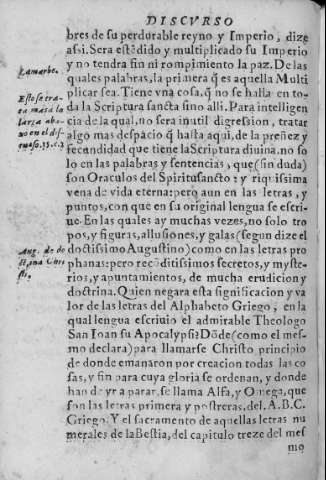 DISCVRSO
bres de su perdurable reyno y Imperio, dize
assi. Sera estẽdido y multiplicado su Imperio
y no tendra fin ni rompimiento la paz. De las
Lamarbe.
quales palabras, la primera q̃ es aquella Multi
plicar sea. Tiene vna cosa, q̃ no se halla en to-
Esto se tra-
ta mas a la
larga aba-
xo en el dis-
curso.33.c.2
da la Scriptura sancta sino alli. Para intelligen
cia de la qual, no sera inutil digression, tratar
algo mas despacio q̃ hasta aqui, de la preñez y
fecundidad que tiene la Scriptura diuina. no so
lo en las palabras y sentencias, que (sin duda)
son Oraculos del Spiritu sancto: y riquissima
vena de vida eterna: pero aun en las letras, y
puntos, con que en su original lengua se escri-
ue. En las quales ay muchas vezes, no solo tro
pos, y figuras, allusiones, y galas (segun dize el
Aug. de do
ctrina Chri
stia.
doctissimo Augustino) como en las letras pro
phanas: pero recõditissimos secretos, y myste-
rios, y apuntamientos, de mucha erudicion y
doctrina. Quien negara esta significacion y va
lor de las letras del Alphabeto Griego, en la
qual lengua escriuio el admirable Theologo
San Ioan su Apocalypsi? Dõde (como el mes-
mo declara) para llamarse Christo principio
de donde emanaron por creacion todas las co
sas, y fin para cuya gloria se ordenan, y donde
han de yr a parar, se llama Alfa, y Omega, que
son las letras primera y postreras, del. A.B.C.
Griego. Y el sacramento de aquellas letras nu
merales de la Bestia, del capitulo treze del mes
mo